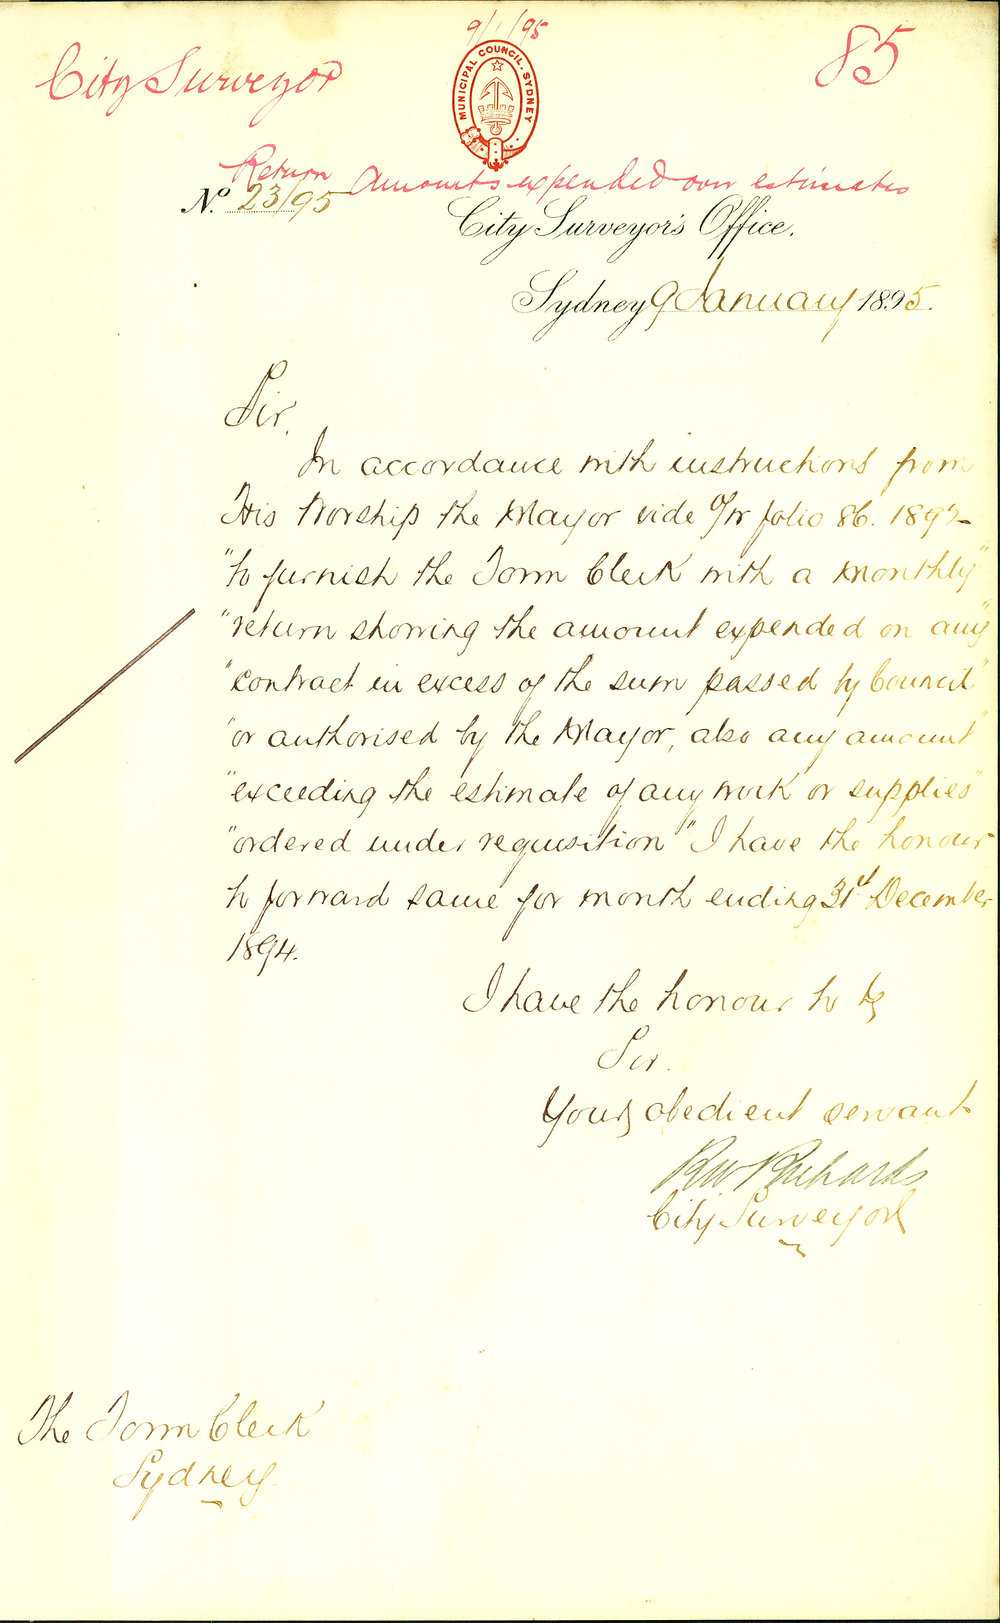 9/1/95
City Surveyor
85
MUNICIPAL COUNCIL. SYDNEY
Return Amounts expended over estimates
No. 23/95
City Surveyor's Office.
Sydney 9 January 1895.
Sir,
In accordance with instructions from
His Worship the Mayor vide folio 86. 189
"to furnish the Town Clerk with a monthly"
"return showing the amount expended on any"
"contract in excess of the sum passed by Council"
"or authorised by the Mayor, also any amount"
"exceeding the estimate of any work or supplies"
"ordered under requisition" I have the honour
to forward same for month ending 31st December
1894.
I have the honour to be
Sir.
Your obedient servant
RW Richards
City Surveyor
The Town Clerk
Sydney